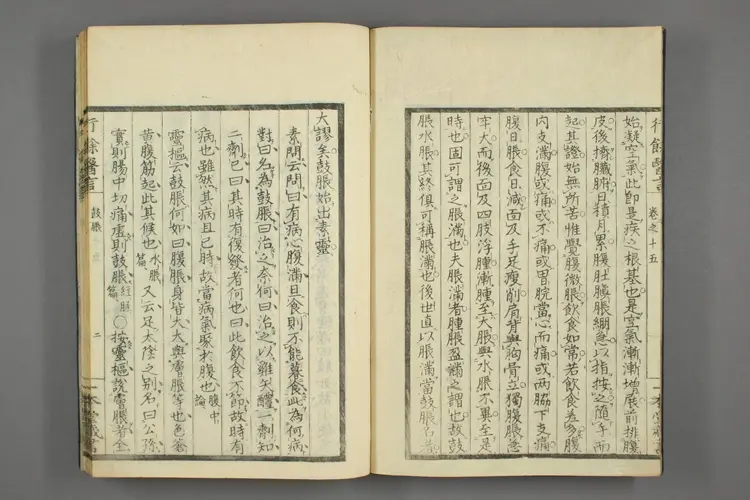 行餘醫言 卷之十五
始凝空氣此卽是疾之根基也是空氣漸漸增展前排腹
皮後擠臟腑日積月累腹肚膨脹綳急以指按之隨手而
起其證始無所苦惟覺腹微脹飲食如常若飲食差多腹
內支滿腹或痛或不痛或胃脘當心而痛或兩脇下支痛
腹日脹食日減面及手足瘦削肩背與胸骨立獨腹脹急
牢大而後面及四肢浮腫漸腫至大脹與水脹不異至是
時也固可謂之脹滿也夫脹滿者腫脹盈滿之謂也故鼓
脹水脹其終俱可稱脹滿也後世直以脹滿當鼓脹名者
大謬矣鼓脹始出素靈
素問云問曰有病心腹滿旦食則不能暮食此為何病
對曰名為鼓脹曰治之奈何曰治之以雞矢醴一劑知
二劑已曰其時有復發者何也曰此飲食不節故時有
病也雖然其病且已時故當病氣聚於腹也 腹中論
靈樞云鼓脹何如曰腹脹身皆大大與膚脹等也色蒼
黃腹筋起此其候也 水脹篇 又云足太陰之別名曰公孫
實則腸中切痛虛則鼓脹 經脈篇 ○按靈樞說膚脹者全
行餘醫言 鼓脹 二 一本堂藏書